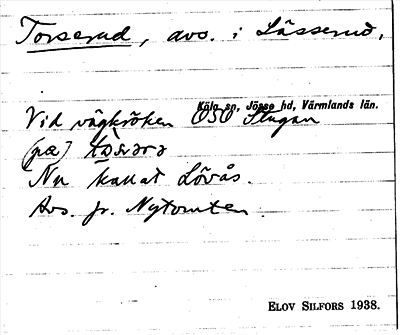 Torserud, avs. i Lässerud,
Köla sn, Jösse hd, Värmlands län.
Vid vägkröken OSO Stugan
(på)
Nu kallat Lövås.
Avs. fr. Nytomten.
ELOV SILFORS 1938.